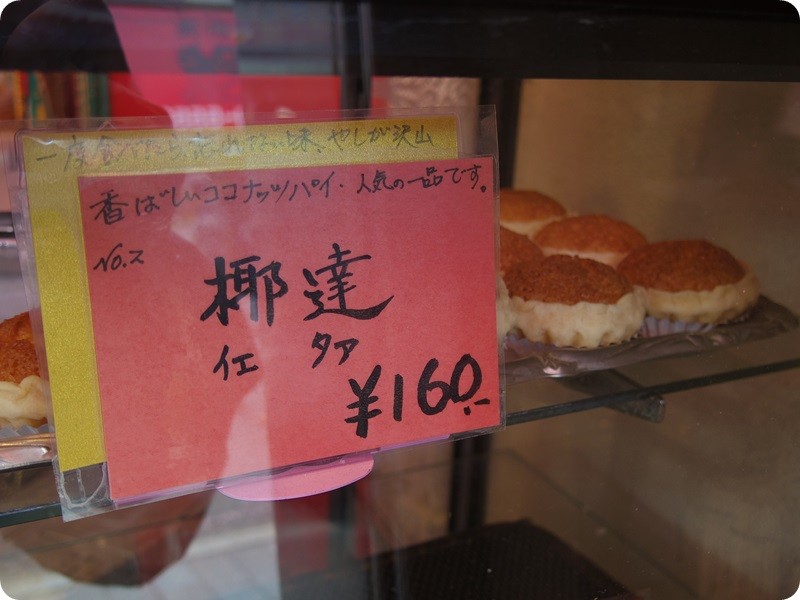 一度食べたら忘れない味、やしが沢山
香ばしいココナッツパイ.人気の一品です。
No.2
椰達
イエ タア
¥160.-